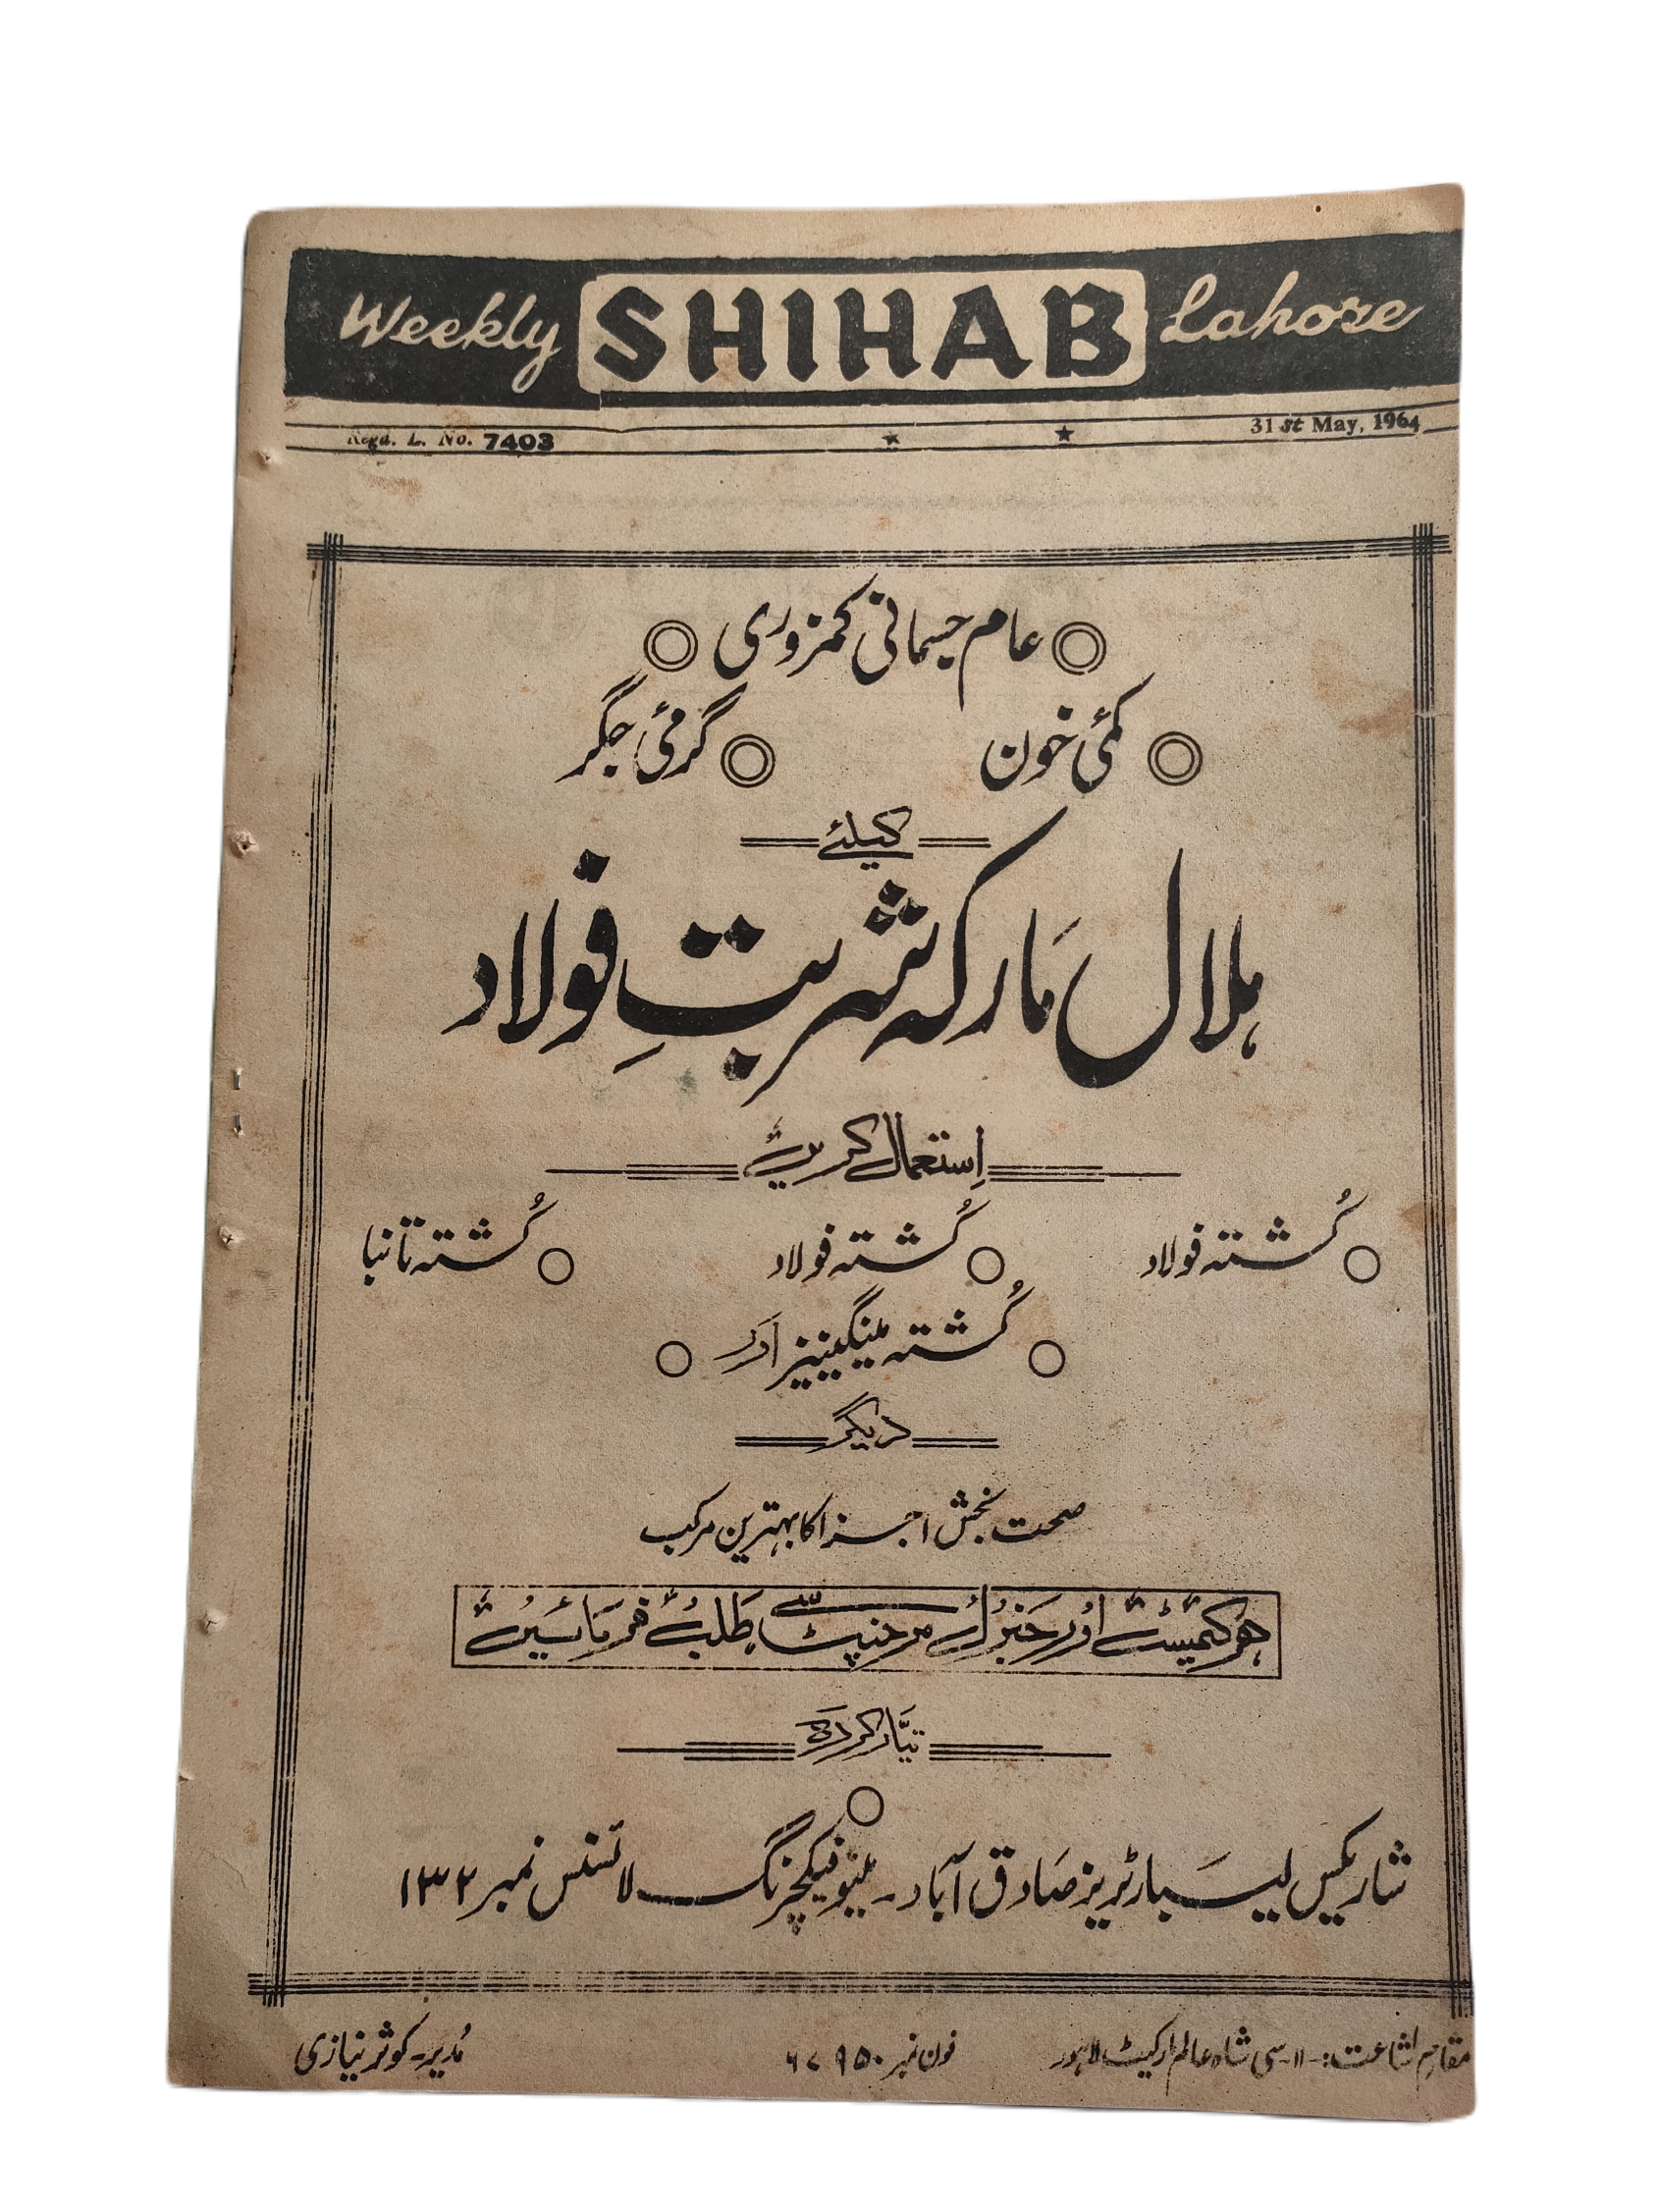 Weekly SHIHAB Lahore
Regd. L. No. 7403 31st May, 1964
عام جسمانی کمزوری
کمئی خون گرمئی جگر
کیلئے
ہلال مارکہ شربتِ فولاد
اِستعمال کریں
کُشتہ فولاد کُشتہ فولاد کُشتہ تانبا
کُشتہ مینگینیز اور
دیگر
صحت بخش اجزا کا بہترین مرکب
ہر کیمسٹ اور جنرل مرچنٹ سے طلب فرمائیں
تیّار کردہ
شاریکس لیبارٹریز صادق آباد۔ مینوفیکچرنگ لائسنس نمبر ۱۳۲
مقامِ اشاعت:۔ ۱۱۔سی شاہ عالم مارکیٹ لاہور فون نمبر ۶۷۹۵۰ مُدیر۔ کوثر نیازی